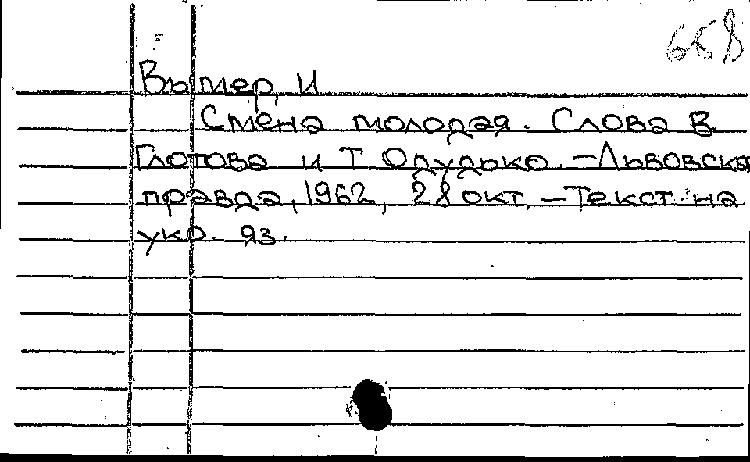 658
Вымер, И
Смена молодая. Слова В.
Глотова и Т. Одудько. – Львовска
правда, 1962, 28 окт. – Текст на
укр. яз.